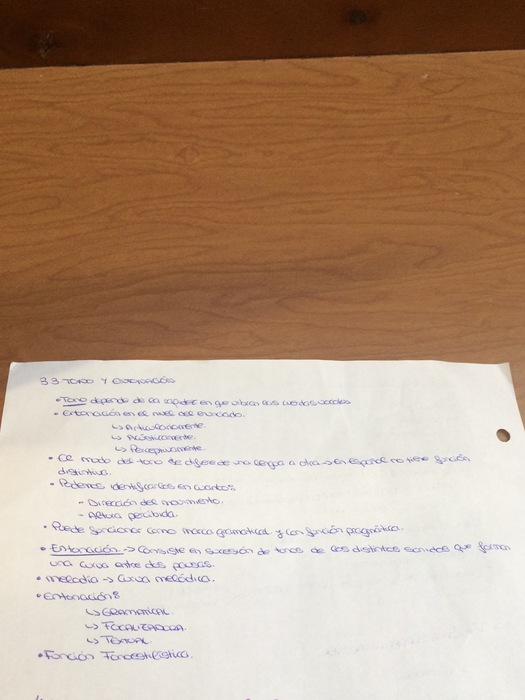 3.3 TONO Y ENTONACIÓN
• Tono depende de la rapidez en que vibran las cuerdas vocales
• Entonación en el nivel del enunciado.
↳ Articulariamente.
↳ Acústicamente.
↳ Perceptivamente.
• El modo del tono se difiere de una lengua a otra → en español no tiene función
distintiva.
• Podemos identificarlos en cuanto:
- Dirección del movimiento.
- Altura percibida.
• Puede funcionar como marca gramatical y con función pragmática.
• Entonación → Consiste en sucesión de tonos de los distintos sonidos que forman
una curva entre dos pausas.
• melodía → Curva melódica.
• Entonación:
↳ GRAMATICAL.
↳ FOCALIZADORA.
↳ TEXTUAL.
• Función Fonoestilística.